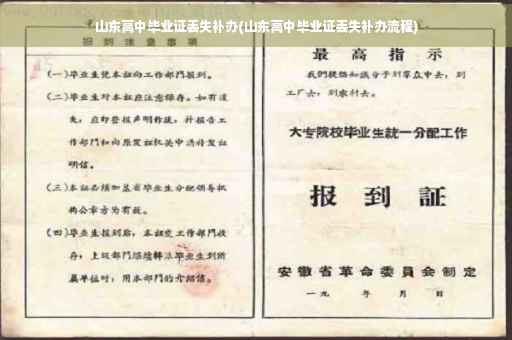 山东高中毕业证丢失补办(山东高中毕业证丢失补办流程)
报到注意事项
(一)毕业生凭本证向工作部门报到。
(二)毕业生对本证应注意保存。如有遗
失,应即登报声明作废,并报告工
作部门和向原发证机关申请补发证
明信。
(三)本证必须加盖省毕业生分配领导机
构公章方为有效。
(四)毕业生报到后,本证交工作部门收
存;上级部门
毕业生到所
属单位时,用本部门的介绍信。
最高指示
我们提倡知识分子到群众中去,到
工厂去,到农村去。
大专院校毕业生统一分配工作
报到证
安徽省革命委员会制定
一九 年 月 日